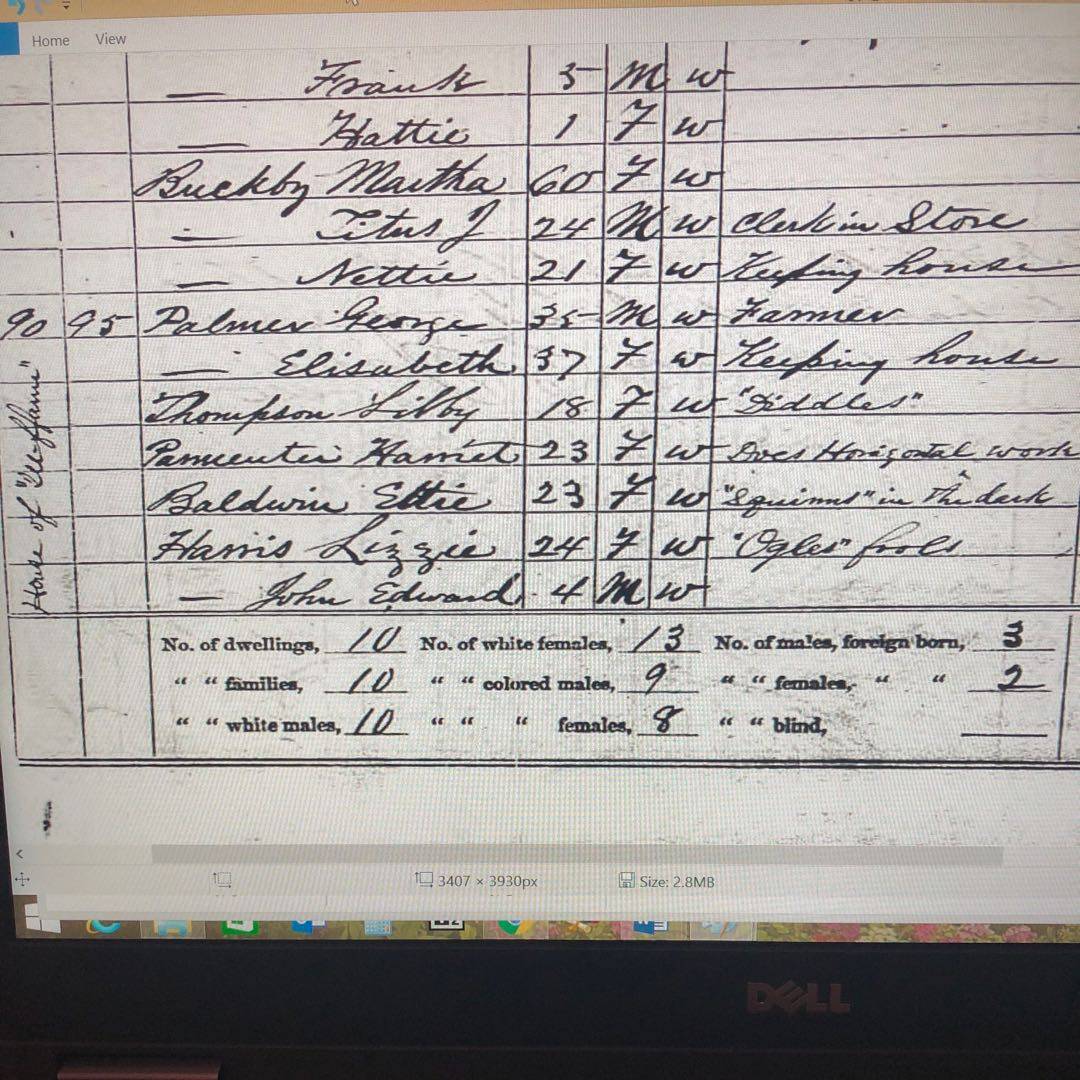 Home View
— Frank 5 M W
— Hattie 1 F W
Buckby Martha 60 F W
— Titus J 24 M W Clerk in Store
— Nettie 21 F W Keeping house
90 95 Palmer George 35 M W Farmer
— Elisabeth 37 F W Keeping house
Thompson Libby 18 F W "Diddles"
Parmenter Harriet 23 F W Does Horizontal work
Baldwin Ettie 23 F W "Squirms" in the dark
Harris Lizzie 24 F W "Ogles" fools
— John Edward 4 M W
House of
No. of dwellings, 10 No. of white females, 13 No. of males, foreign born, 3
" " families, 10 " " colored males, 9 " " females, " " 2
" " white males, 10 " " " females, 8 " " blind,
3407 × 3930px Size: 2.8MB
DELL